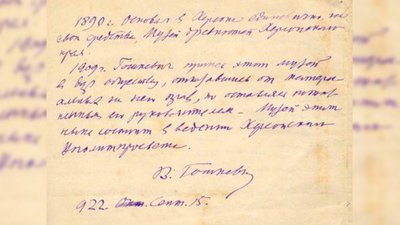 1890 г. Основал в Херсоне
свои средства Музей древностей Херсонского
края.
1909 г. Гошкевич принес этот музей
в дар обществу, отказавшись от
на него прав, но оставаясь
его руководителем. – Музей этот
ныне состоит в ведении Херсонского
Политпросвета.
В. Гошкевич
922. Сент. 15.